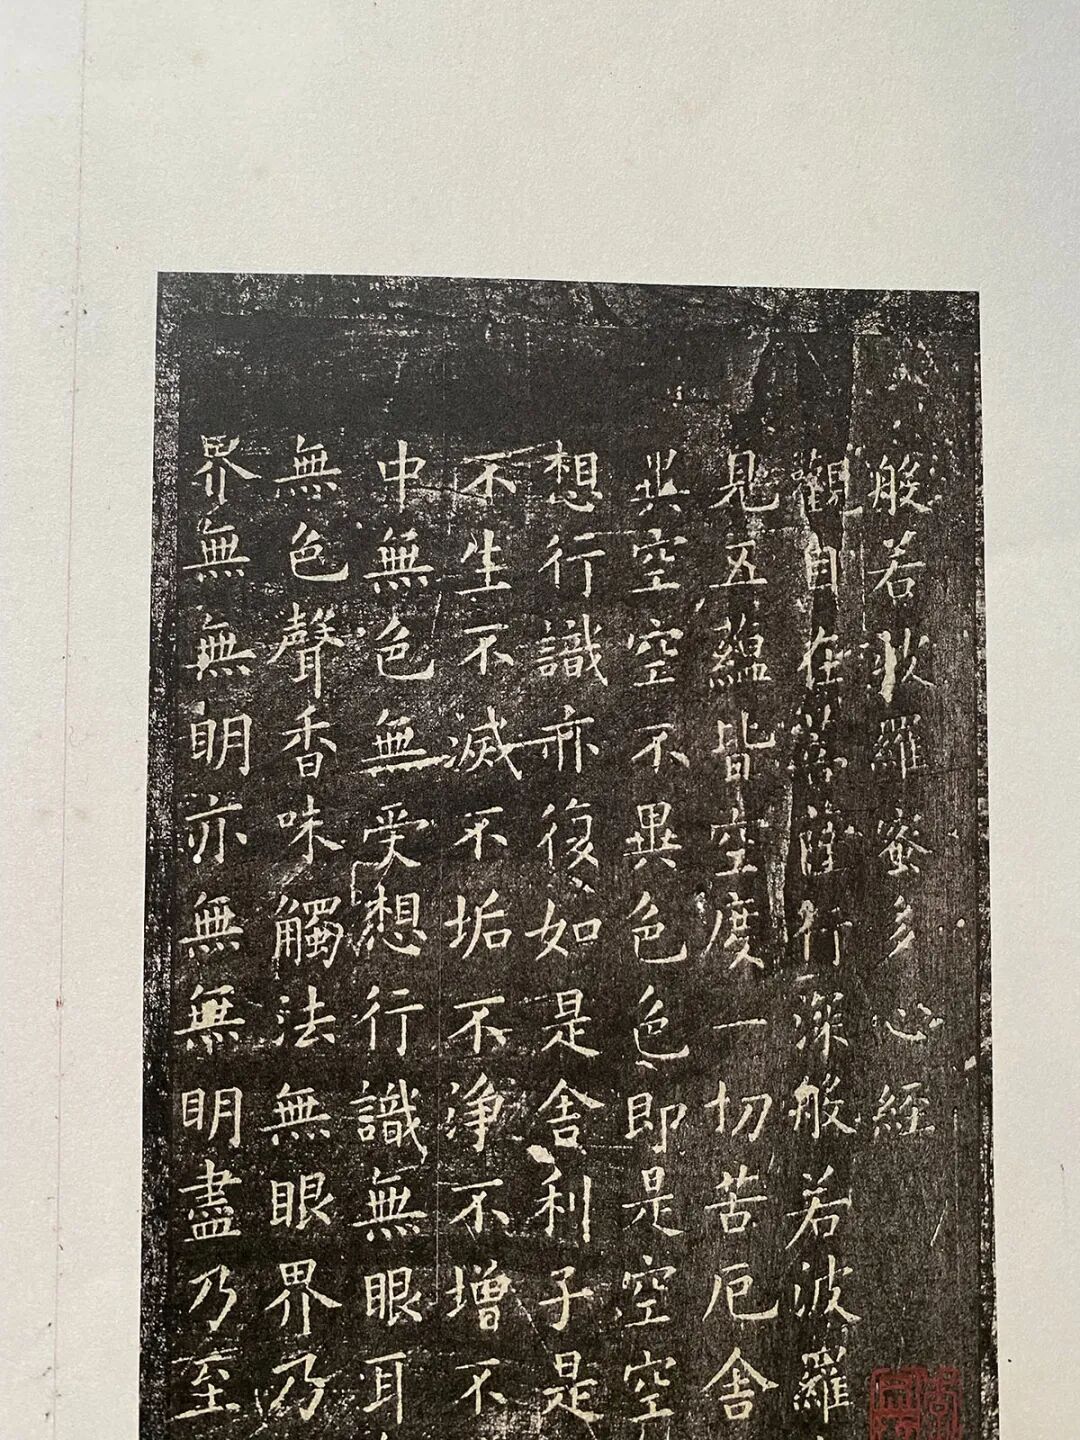 般若波羅蜜多心經
觀自在菩薩行深般若波羅
見五蘊皆空度一切苦厄舍
異空空不異色色即是空空
想行識亦復如是舍利子是
不生不滅不垢不淨不增不
中無色無受想行識無眼耳
無色聲香味觸法無眼界乃
界無無明亦無無明盡乃至